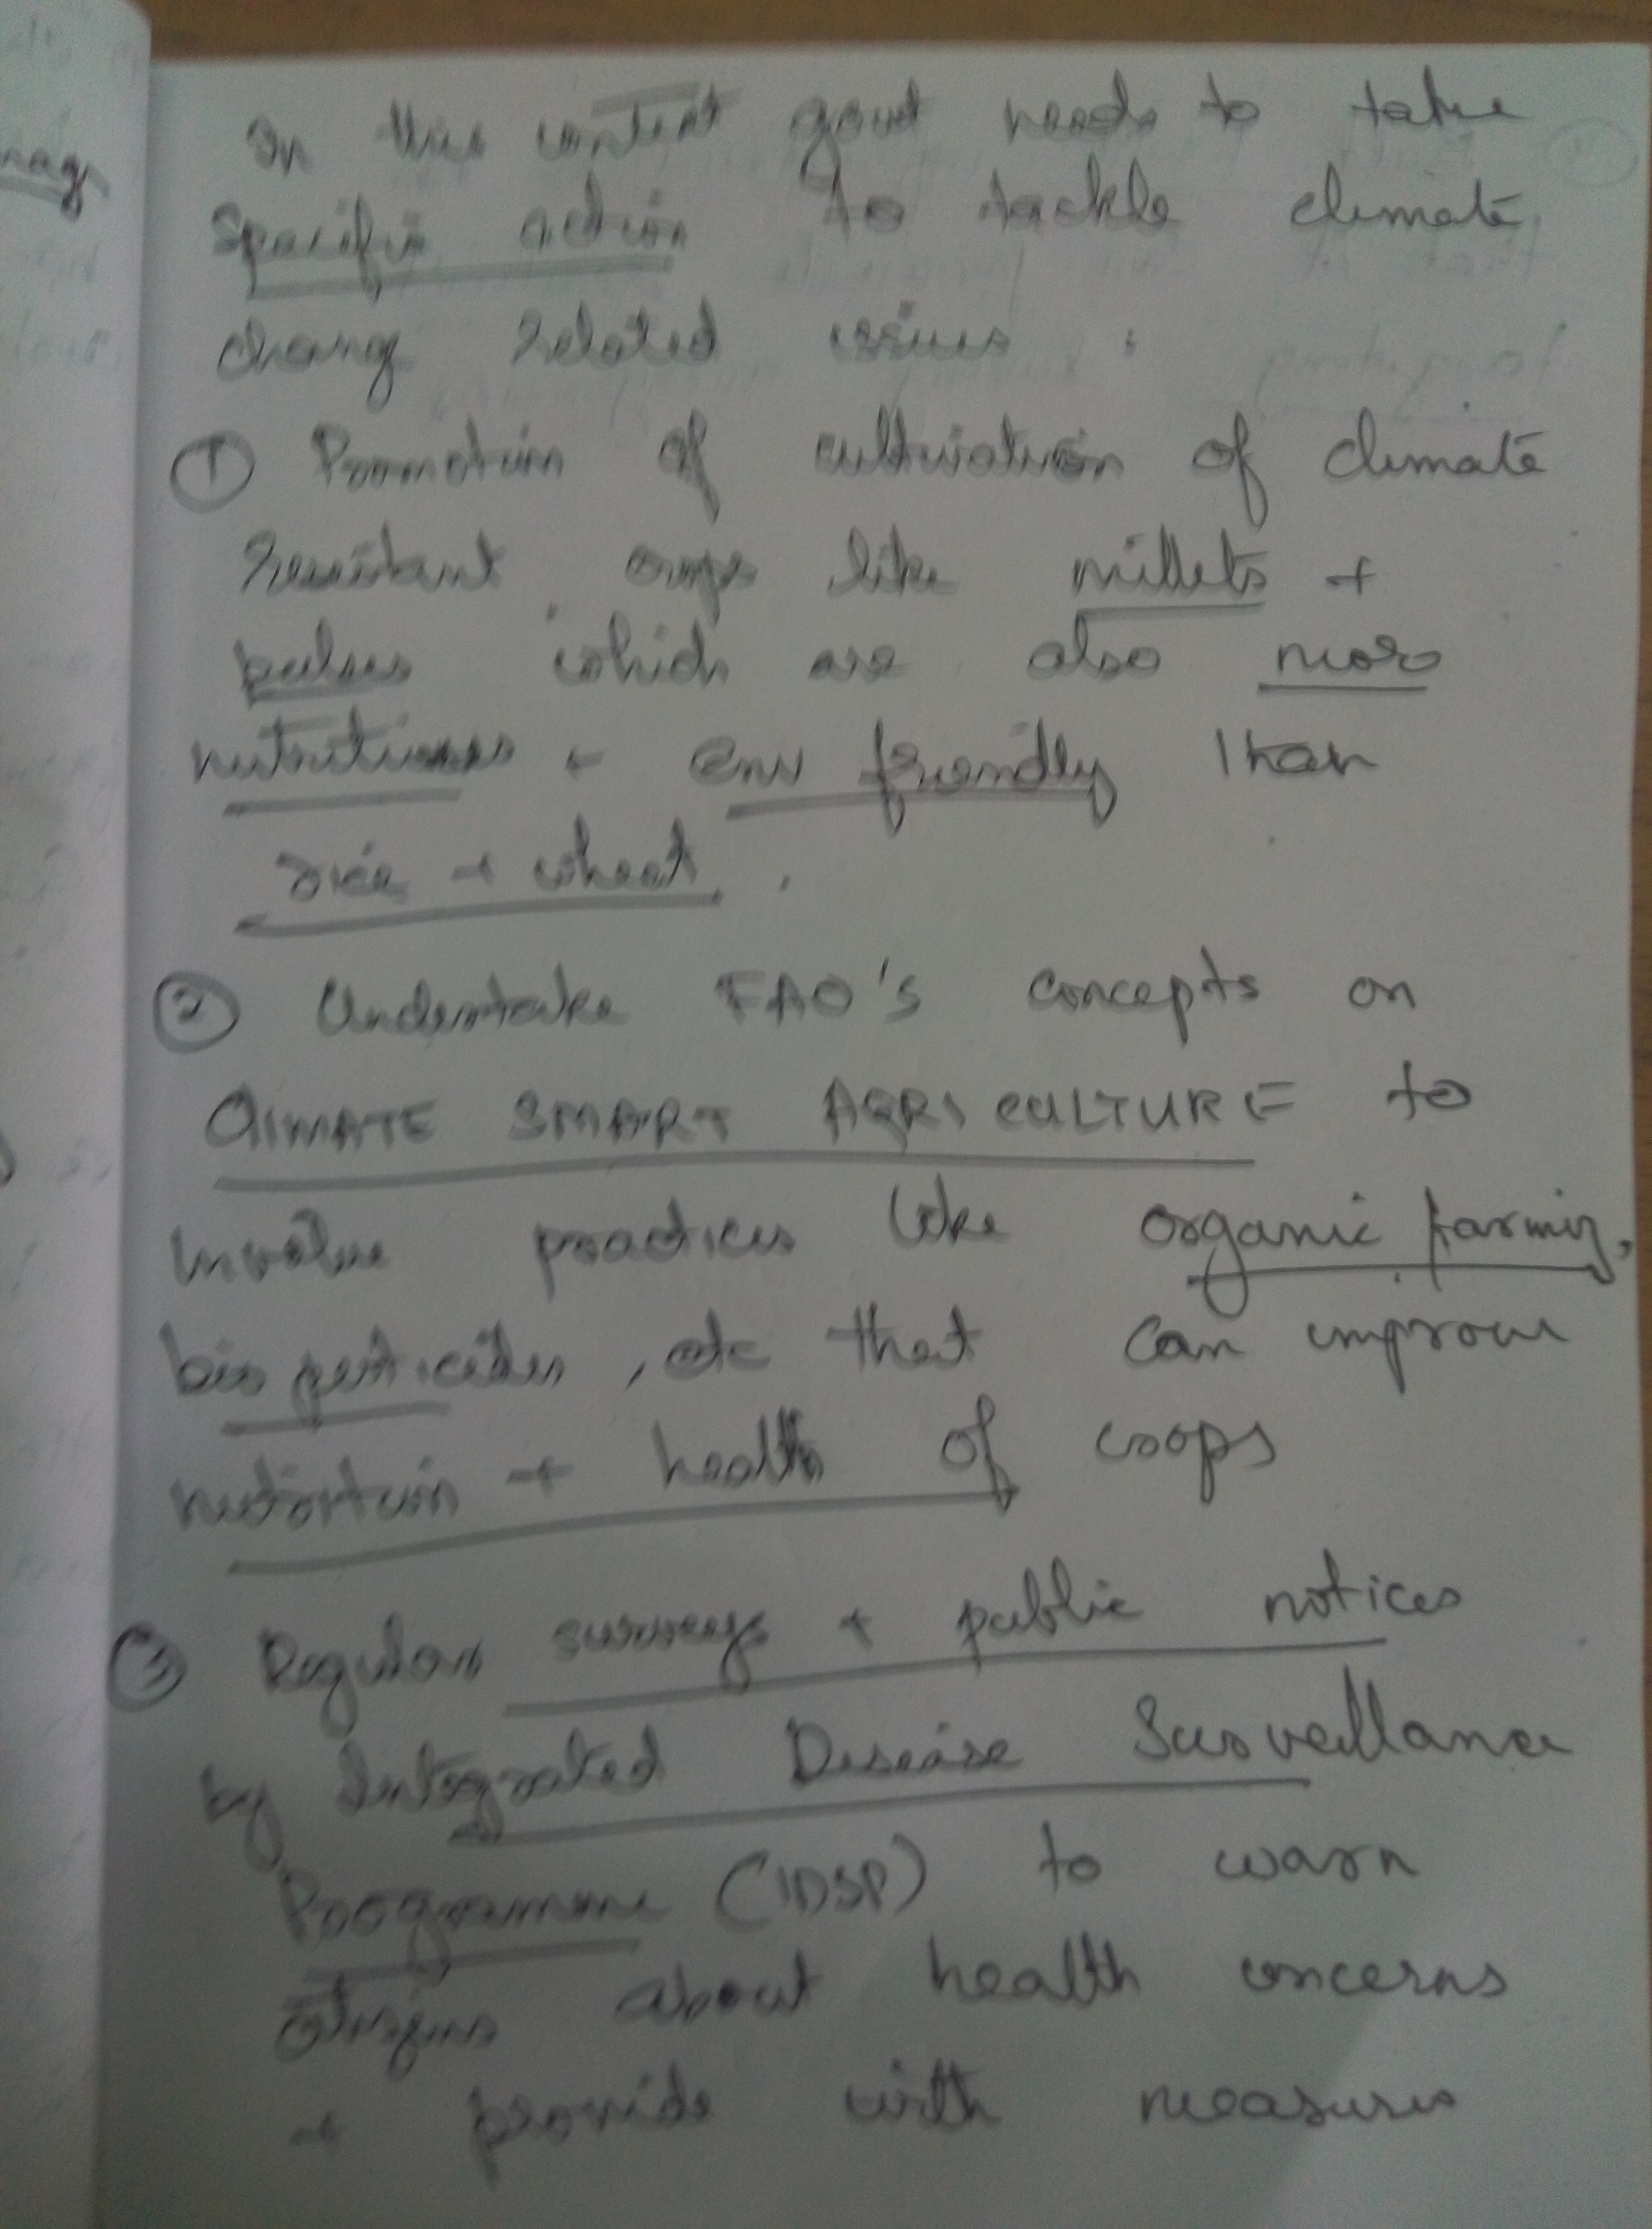 In this context govt needs to take
specific action to tackle climate
change related issues :
① Promotion of cultivation of climate
resistant crops like millets +
pulses which are also more
nutritious + env friendly than
rice + wheat.
② Undertake FAO's concepts on
CLIMATE SMART AGRICULTURE to
involve practices like organic farming,
bio pesticides, etc that can improve
nutrition + health of crops
③ Regular surveys + public notices
by Integrated Disease Surveillance
Programme (IDSP) to warn
about health concerns
+ provide with measures